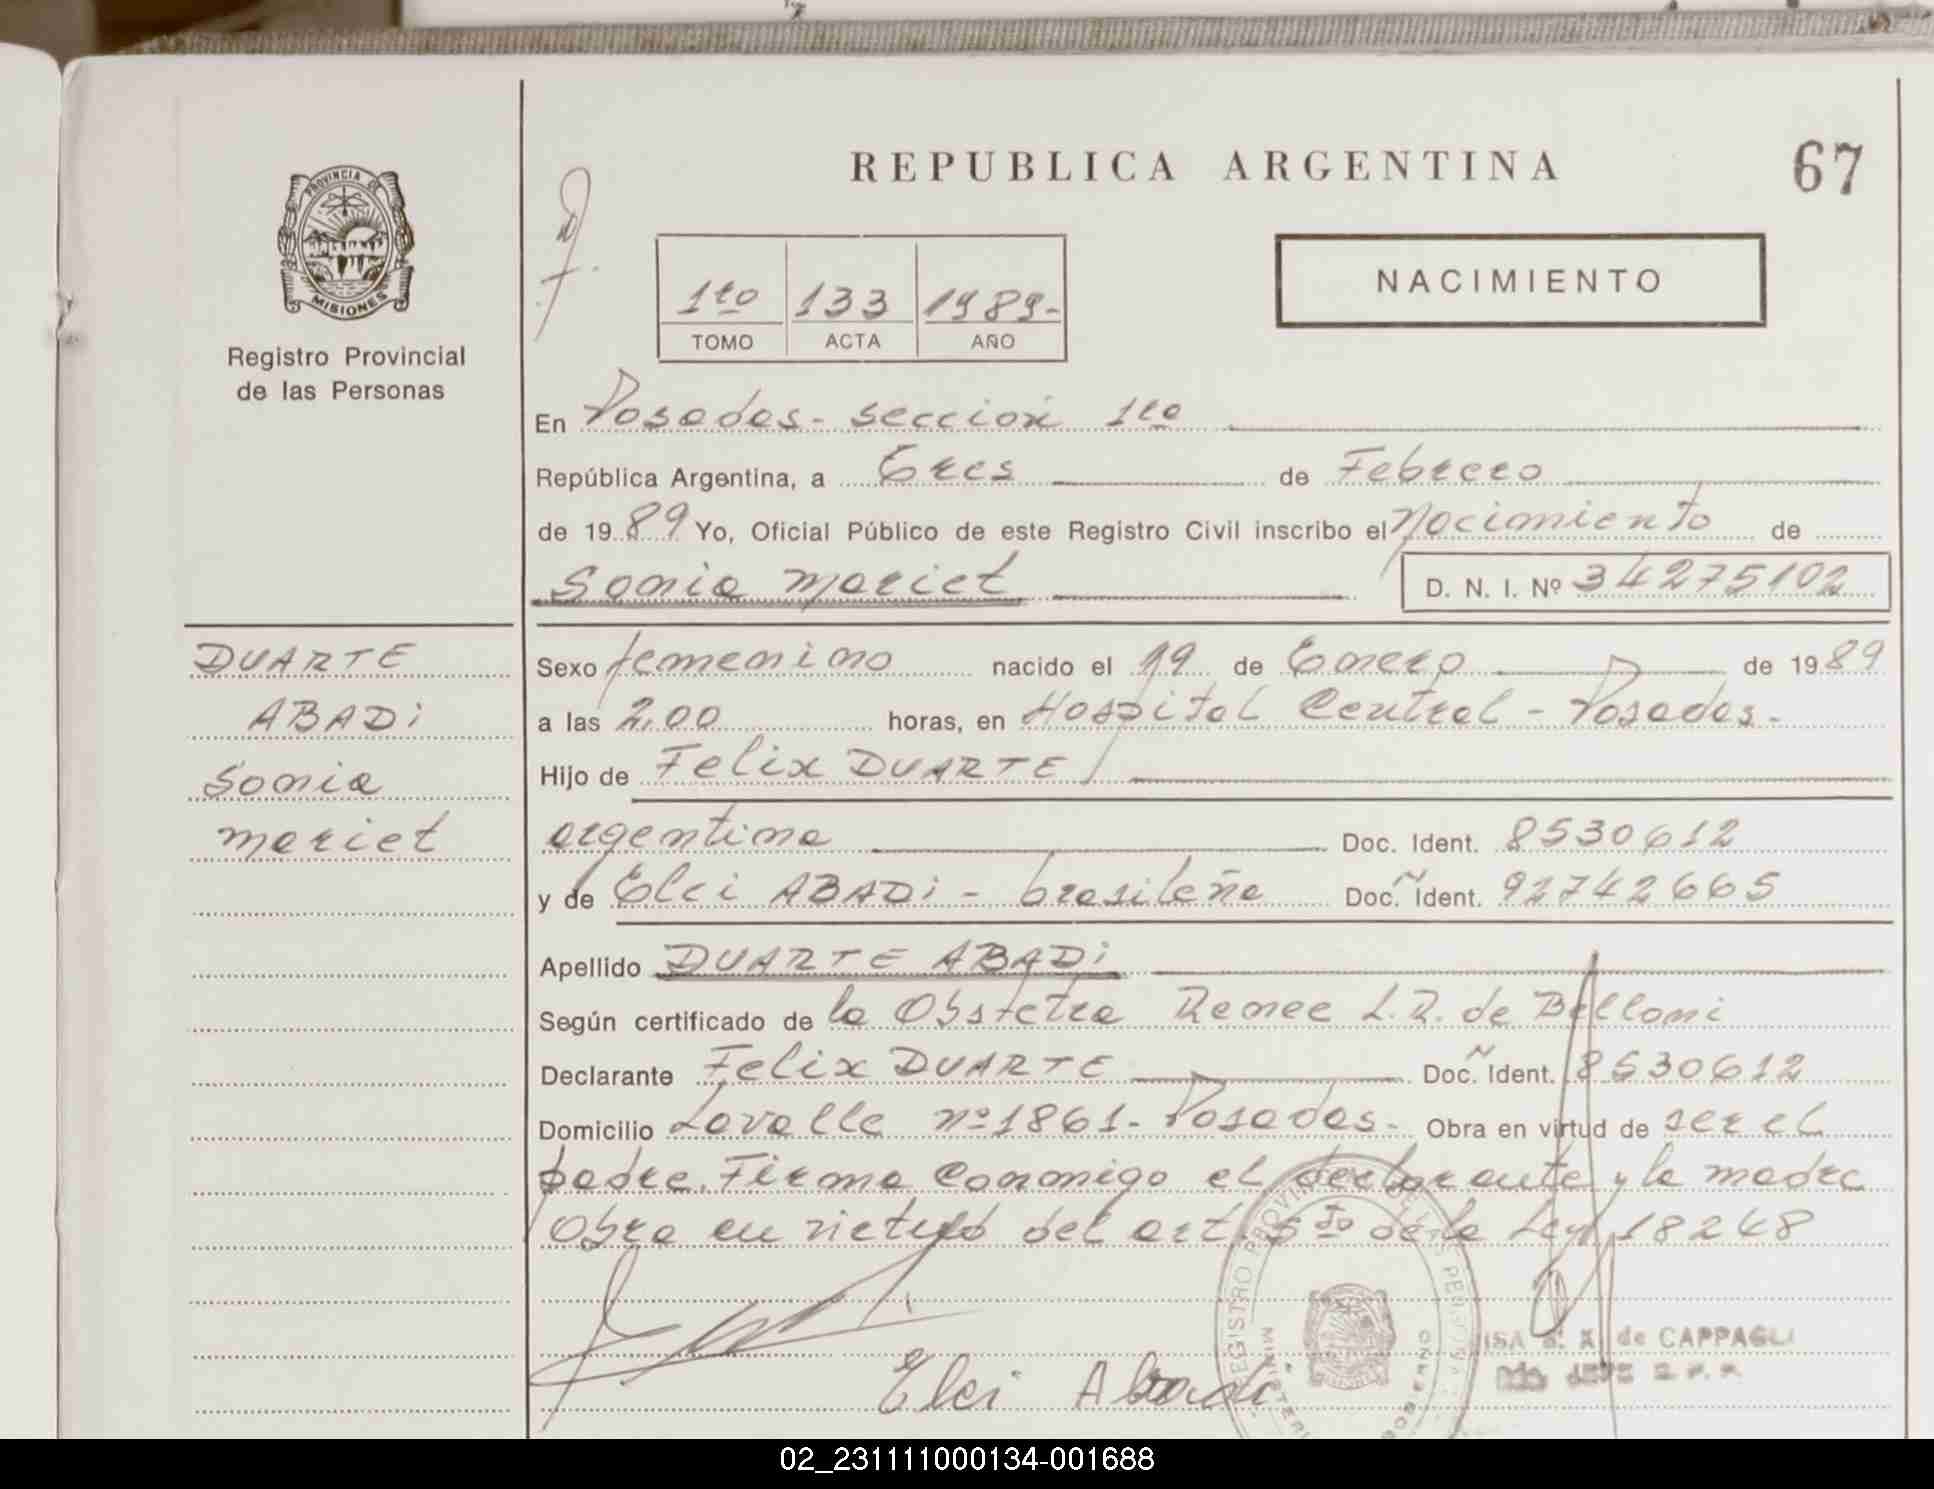 REPUBLICA ARGENTINA
67
PROVINCIA DE
MISIONES
Registro Provincial
de las Personas
1ro 133 1989-
TOMO ACTA AÑO
NACIMIENTO
En Posadas - Sección 1ra
República Argentina, a Tres de Febrero
de 1989 Yo, Oficial Público de este Registro Civil inscribo el Nacimiento de
Sonia Mariet D. N. I. Nº 34275102
DUARTE
ABADI
Sonia
Mariet
Sexo femenino nacido el 19 de Enero de 1989
a las 2,00 horas, en Hospital Central - Posadas.
Hijo de Felix DUARTE
argentina Doc. Ident. 8530612
y de Elci ABADI - brasileña Doc. Ident. 92742665
Apellido DUARTE ABADI
Según certificado de la Obstetra Renee L.R. de Belloni
Declarante Felix DUARTE Doc. Ident. 8530612
Domicilio Lavalle nº 1861 - Posadas - Obra en virtud de ser el
padre. Firma Conmigo el declarante y la madre
Obra en virtud del art. 5to de la Ley 18248
Elci Abadi
REGISTRO PROVINCIAL
de CAPPAGLI
02_231111000134-001688